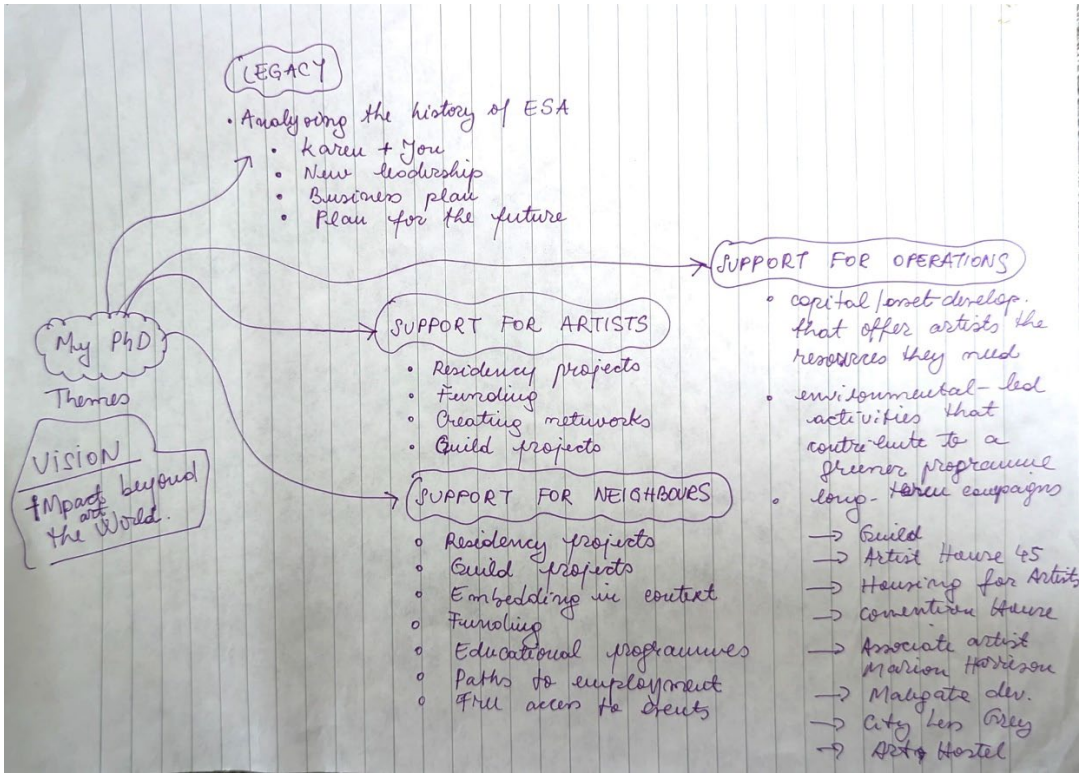 LEGACY
• Analysing the history of ESA
• Karen + You
• New leadership
• Business plan
• Plan for the future
My PhD
Themes
VISION
Impact beyond
art
the World.
SUPPORT FOR ARTISTS
• Residency projects
• Funding
• Creating networks
• Guild projects
SUPPORT FOR NEIGHBOURS
• Residency projects
• Guild projects
• Embedding in context
• Funding
• Educational programmes
• Paths to employment
• Free access to events
SUPPORT FOR OPERATIONS
• capital/asset develop.
that offer artists the
resources they need
• environmental-led
activities that
contribute to a
greener programme
• long-term campaigns
→ Guild
→ Artist House 45
→ Housing for Artists
→ Convention House
→ Associate artist
Marion Harrison
→ Mabgate dev.
→ City Less Grey
→ Art Hostel